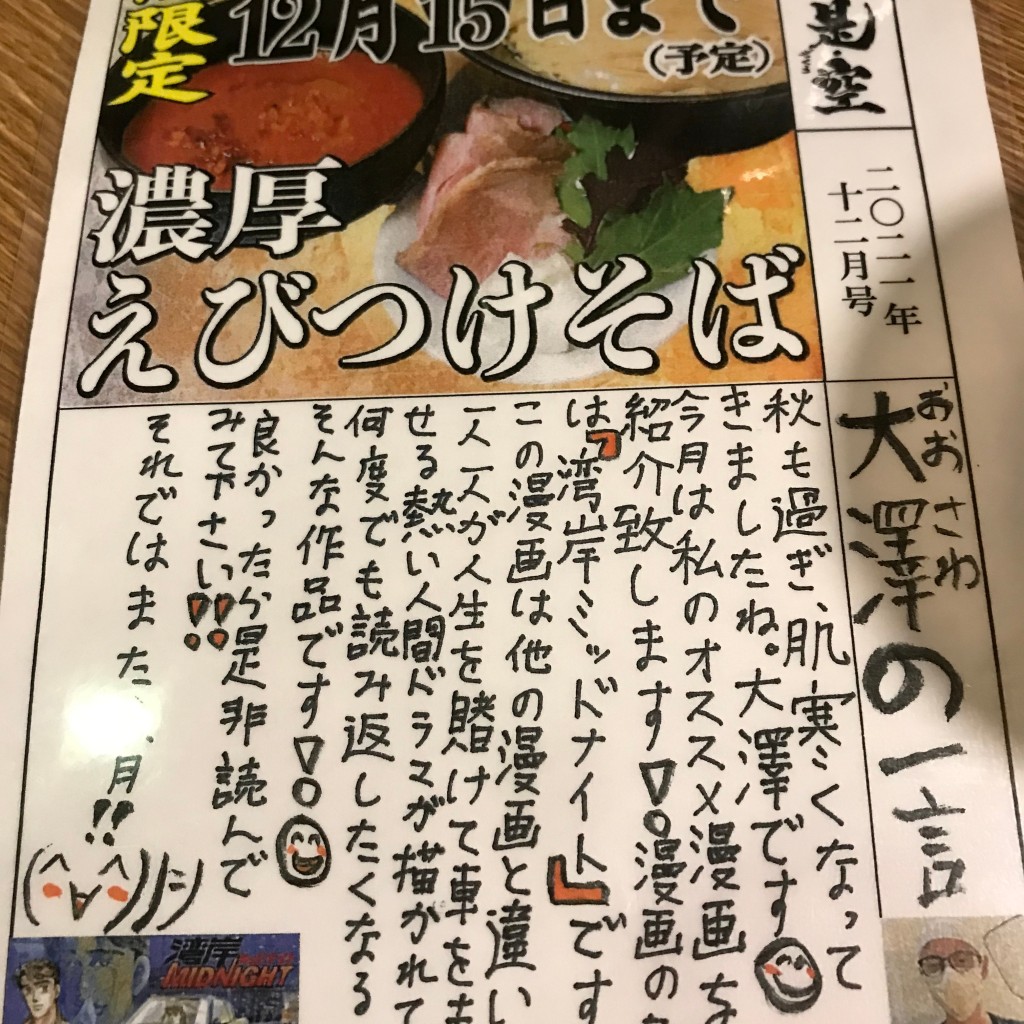 限定
12月15日まで
(予定)
濃厚
えびつけそば
是空
二〇二一年
十二月号
おおさわ
大澤の一言
秋も過ぎ、肌寒くなって
きましたね。大澤です
今月は私のオススメ漫画を
紹介致します!。漫画の
は『湾岸ミッドナイト』です
この漫画は他の漫画と違い
一人一人が人生を賭けて車を
せる熱い人間ドラマが描かれて
何度でも読み返したくなる
そんな作品です!。
良かったら是非読んで
みて下さい!!
それではまた
月!!
(^o^)ノシ
湾岸
MIDNIGHT